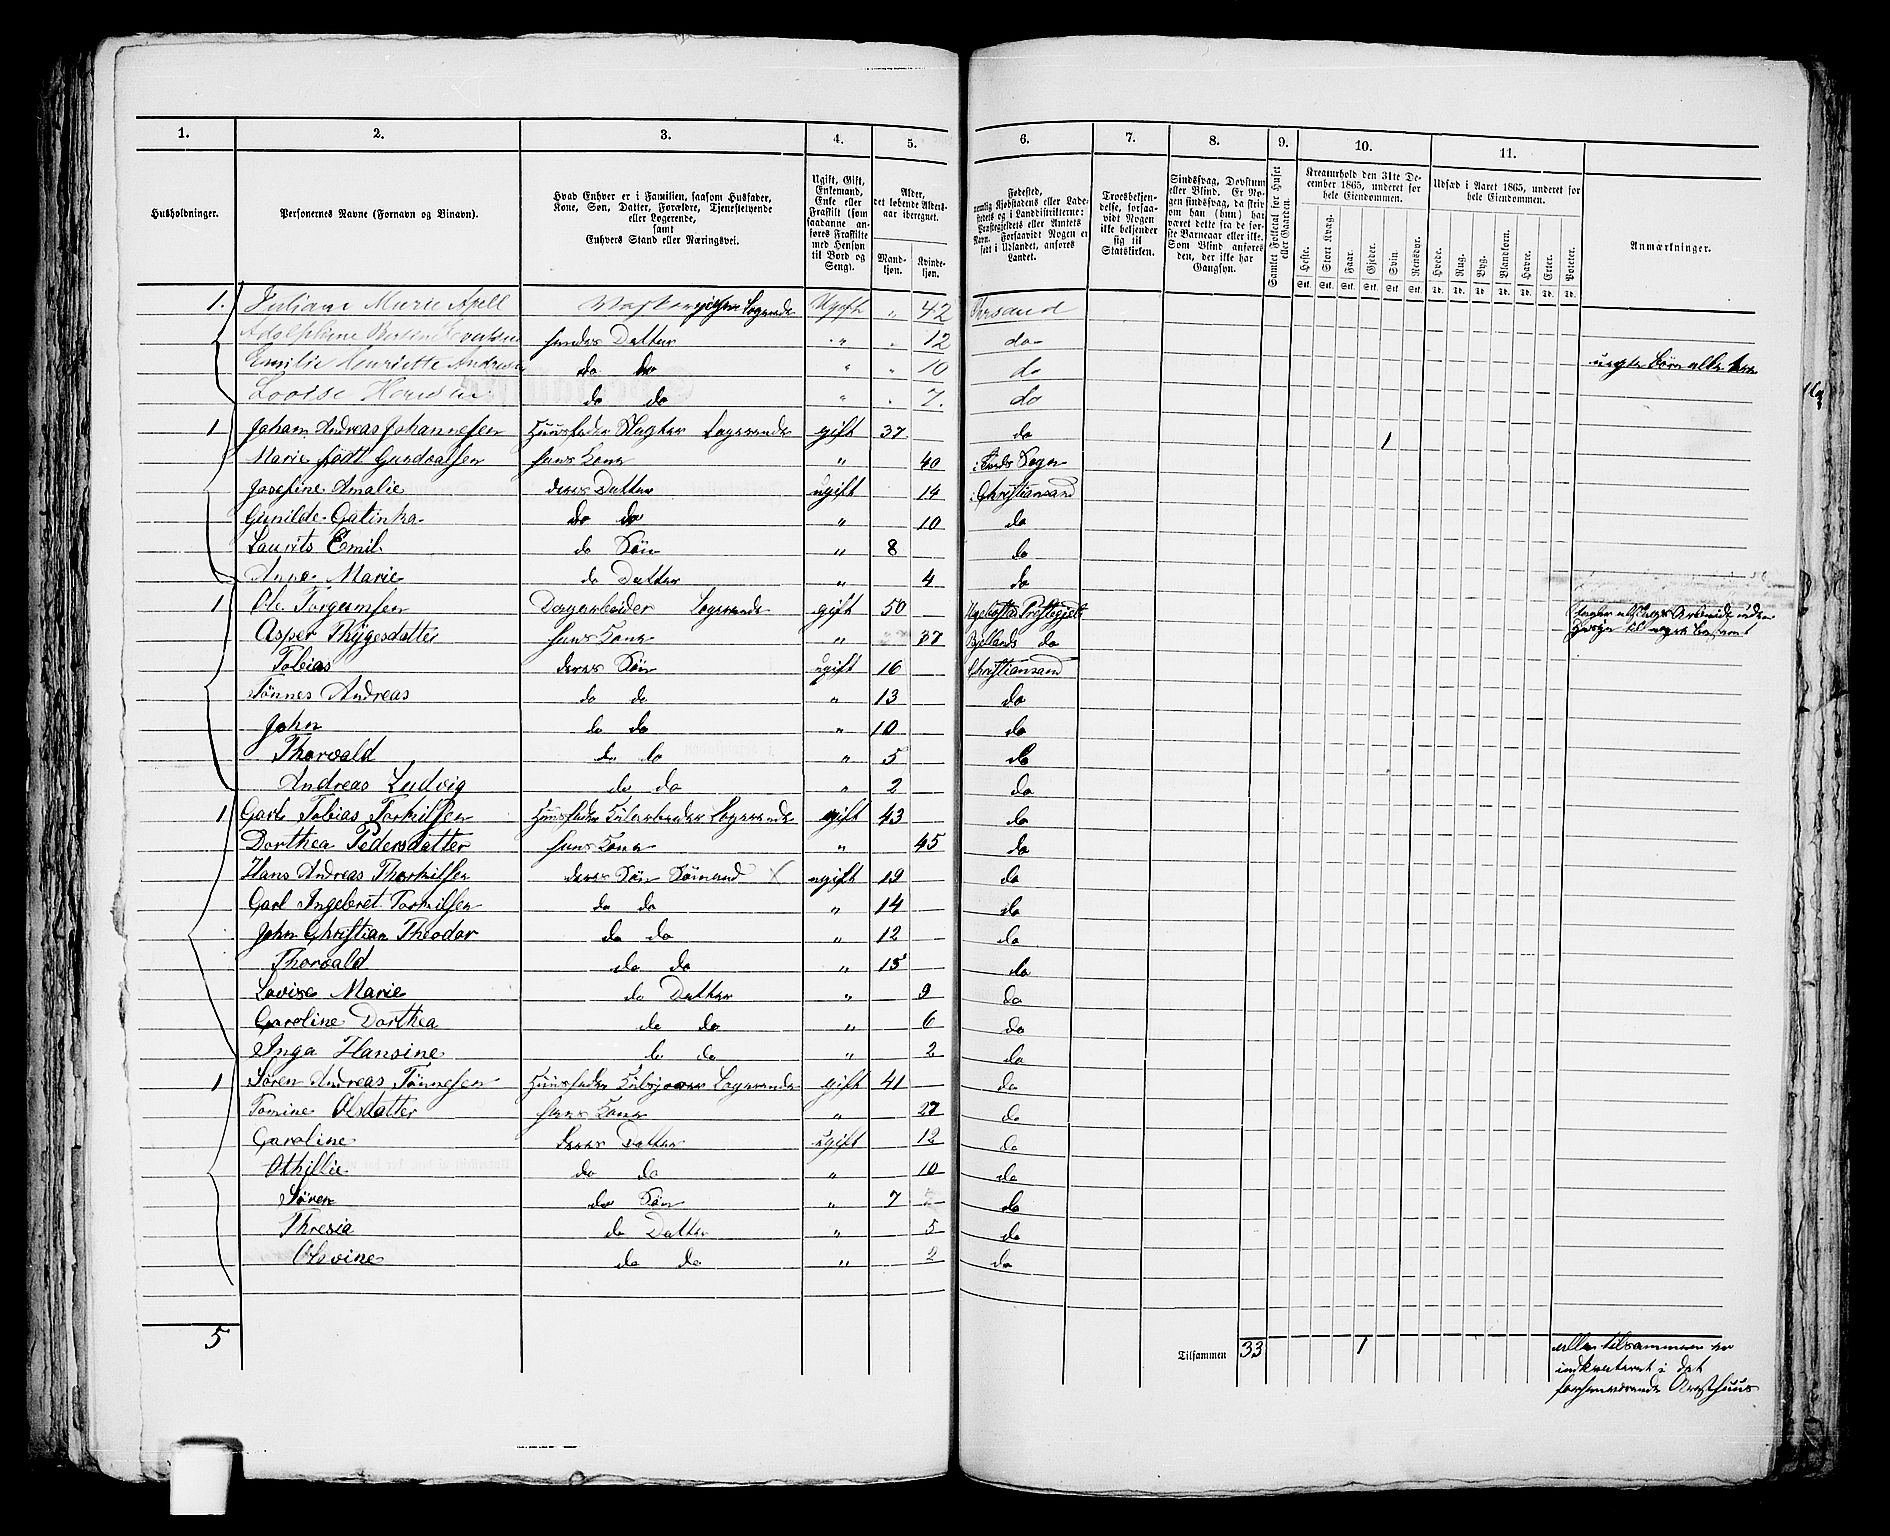 1. 2. 3. 4. 5. 6. 7. 8. 9. 10. 11.
Husholdninger.
Personernes Navne (Fornavn og Binavn).
Hvad Enhver er i Familien, saasom Husfader, Kone, Søn, Datter, Forældre, Tjenestetyende eller Logerende, samt Enhvers Stand eller Næringsvei.
Ugift, Gift, Enkemand, Enke eller Fraskilt (som saadanne anføres Fraskilte med Hensyn til Bord og Seng).
Alder, det løbende Aldersaar iberegnet.
Mandkjøn. Kvindekjøn.
Fødested, nemlig Kjøbstadens eller Ladestedets og i Landdistrikterne: Præstegjeldets eller Amtets Navn. Forsaavidt Nogen er født i Udlandet, anføres Landet.
Troesbekjendelse, forsaavidt Nogen ikke bekjender sig til Statskirken.
Sindssvag, Døvstum eller Blind. Er Nogen sindssvag, da skrives om han (hun) har været det fra de første Barneaar eller ikke. Som Blind anføres den, der ikke har Gangsyn.
Samlet Folketal for Huset eller Gaarden.
Kreaturhold den 31te December 1865, underet for hele Eiendommen.
Heste. Stort Kvæg. Faar. Gjeder. Svin. Rensdyr.
Udsæd i Aaret 1865, underet for hele Eiendommen.
Hvede. Rug. Byg. Blandkorn. Havre. Erter. Poteter.
Anmærkninger.
1. Juliane Marie Apell Logerende Ugift " 42 Chrsand
hendes Datter " " 12 do
Emilie Henriette do do " " 10 do
Lovise do do " " 7. do
1 Johan Andreas Johannesen Huusfader Slagter Logerende gift 37 do 1
Marie født Gundvalsen hans Kone " 40 Sogn
Josefine Amalie deres Datter ugift 14 Christiansand
Gunilde Catinka do do " 10 do
Laurits Emil do Søn " 8 do
Anne Marie do Datter " 4 do
1 Ole Torgeimsen Dagarbeider Logerende gift 50
Asper Thygesdatter hans Kone " 37 Bjellands do
Tobias deres Søn ugift 16 Christiansand
Tønnes Andreas do do " 13 do
John do do " 10 do
Thorvald do do " 5 do
Andreas Ludvig do do " 2 do
1 Carl Tobias Torkilsen Huusfader Logerende gift 43 do
Dorthea Pedersdatter hans Kone " 45 do
Hans Andreas Thorkilsen deres Søn Sømand X ugift 19 do
Carl Ingebret Torkilsen do do " 14 do
John Christian Theodor do do " 12 do
Thorvald do do " 15 do
Lovise Marie do Datter " 9 do
Caroline Dorthea do do " 6 do
Inga Hansine do do " 2 do
1 Søren Andreas Tønnesen Huusfader Logerende gift 41 do
Tomine Olsdatter hans Kone " 27 do
Caroline deres Datter ugift 12 do
Othillie do do " 10 do
Søren do Søn " 7 do
Thresia do Datter " 5 do
Olevine do do " 2 do
5 Tilsammen 33 1
alle tilsammen er
indkvarteret i det
forhenværende Arresthuus